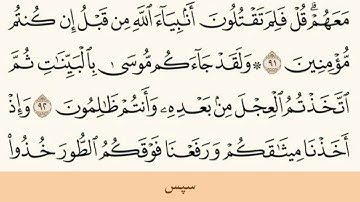 مَعَهُمْ ۗ قُلْ فَلِمَ تَقْتُلُونَ أَنۢبِيَآءَ ٱللَّهِ مِن قَبْلُ إِن كُنتُم
مُّؤْمِنِينَ ٩١ ۞ وَلَقَدْ جَآءَكُم مُّوسَىٰ بِٱلْبَيِّنَٰتِ ثُمَّ
ٱتَّخَذْتُمُ ٱلْعِجْلَ مِنۢ بَعْدِهِۦ وَأَنتُمْ ظَٰلِمُونَ ٩٢ وَإِذْ
أَخَذْنَا مِيثَٰقَكُمْ وَرَفَعْنَا فَوْقَكُمُ ٱلطُّورَ خُذُوا۟
سپس